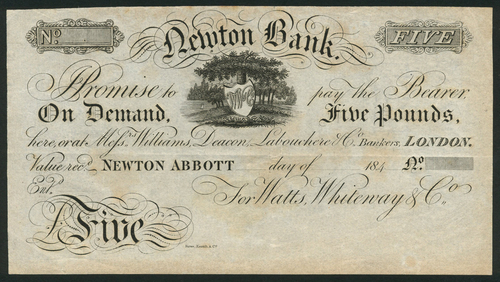 No Newton Bank. FIVE
I Promise to pay the Bearer
On Demand, Five Pounds,
here, or at Messrs. Williams, Deacon, Labouchere & Co. Bankers, LONDON.
Value recd. NEWTON ABBOTT day of 184 No.
Entd. For Watts, Whiteway & Co.
£ Five